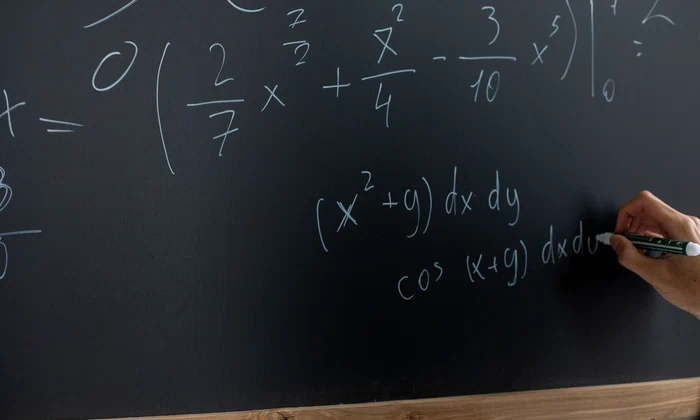 x = 0 (2/7 x^(7/2) + x^2/4 - 3/10 x^5)|_0 =
(x^2 + y) dx dy
cos (x+y) dx dy